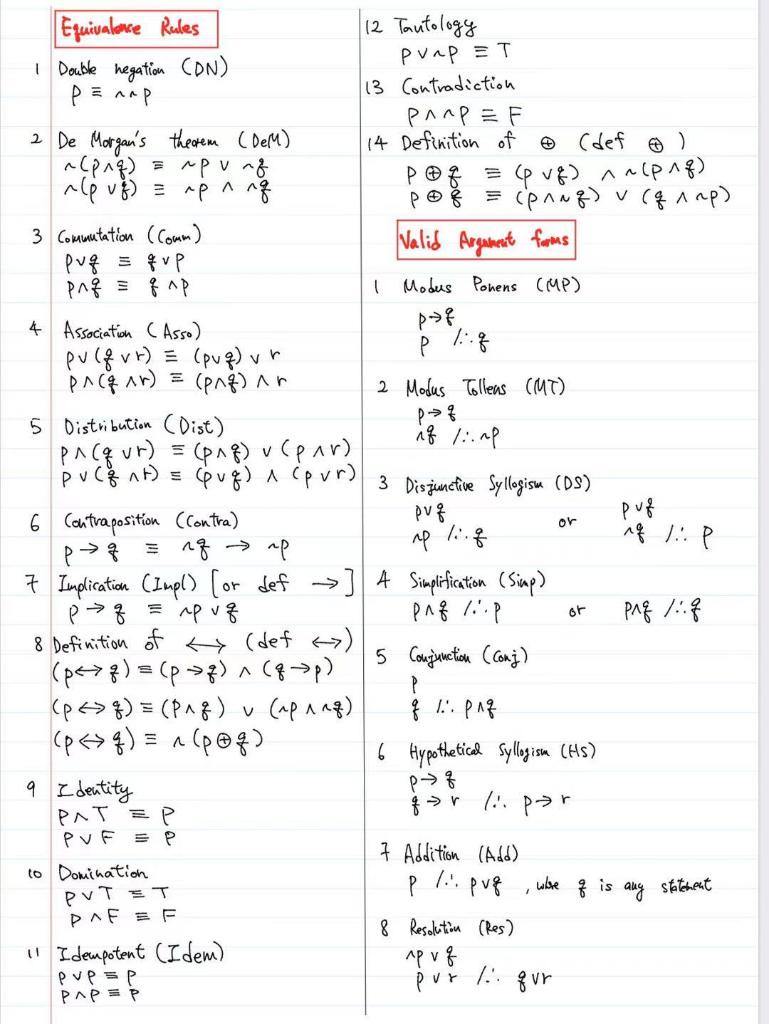 Equivalence Rules
1 Double negation (DN)
p ≡ ~~p
2 De Morgan's theorem (DeM)
~(p∧q) ≡ ~p ∨ ~q
~(p ∨q) ≡ ~p ∧ ~q
3 Commutation (Comm)
p∨q ≡ q∨p
p∧q ≡ q∧p
4 Association (Asso)
p∨(q∨r) ≡ (p∨q)∨r
p∧(q∧r) ≡ (p∧q)∧r
5 Distribution (Dist)
p∧(q∨r) ≡ (p∧q) ∨ (p∧r)
p∨(q∧r) ≡ (p∨q) ∧ (p∨r)
6 Contraposition (Contra)
p → q ≡ ~q → ~p
7 Implication (Impl) [or def →]
p → q ≡ ~p ∨ q
8 Definition of ↔ (def ↔)
(p↔q) ≡ (p→q) ∧ (q→p)
(p↔q) ≡ (p∧q) ∨ (~p∧~q)
(p↔q) ≡ ~(p⊕q)
9 Identity
P∧T ≡ P
P∨F ≡ P
10 Domination
P∨T ≡ T
P∧F ≡ F
11 Idempotent (Idem)
P∨P ≡ P
P∧P ≡ P
12 Tautology
P∨~P ≡ T
13 Contradiction
P∧~P ≡ F
14 Definition of ⊕ (def ⊕)
p⊕q ≡ (p∨q) ∧ ~(p∧q)
p⊕q ≡ (p∧~q) ∨ (q∧~p)
Valid Argument forms
1 Modus Ponens (MP)
p→q
p /∴ q
2 Modus Tollens (MT)
p→q
~q /∴ ~p
3 Disjunctive Syllogism (DS)
p∨q or p∨q
~p /∴ q ~q /∴ p
4 Simplification (Simp)
p∧q /∴ p or p∧q /∴ q
5 Conjunction (Conj)
p
q /∴ p∧q
6 Hypothetical Syllogism (HS)
p→q
q→r /∴ p→r
7 Addition (Add)
p /∴ p∨q , where q is any statement
8 Resolution (Res)
~p∨q
p∨r /∴ q∨r